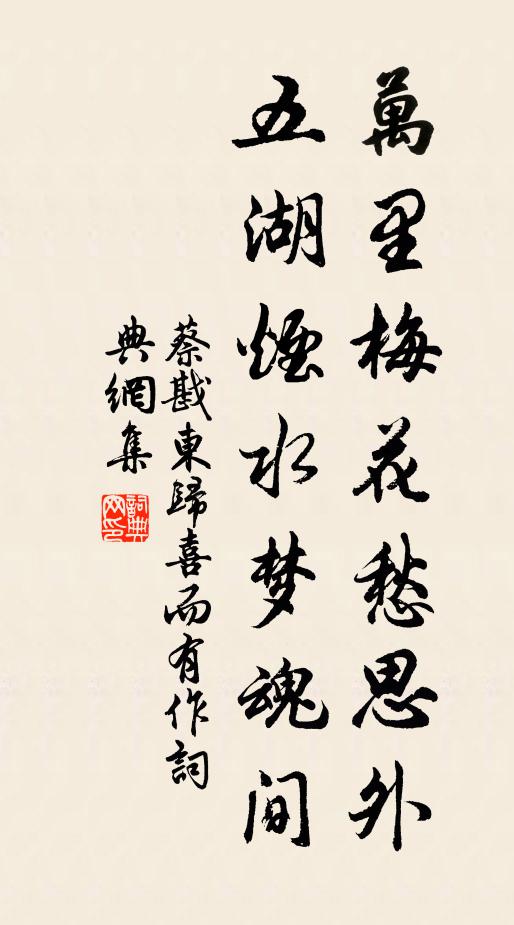 萬里梅花愁思外
五湖煙水梦魂间
蔡戡東歸喜而有作詞
典網集
詞典网印